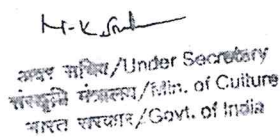 अवर सचिव/Under Secretary
संस्कृति मंत्रालय/Min. of Culture
भारत सरकार/Govt. of India